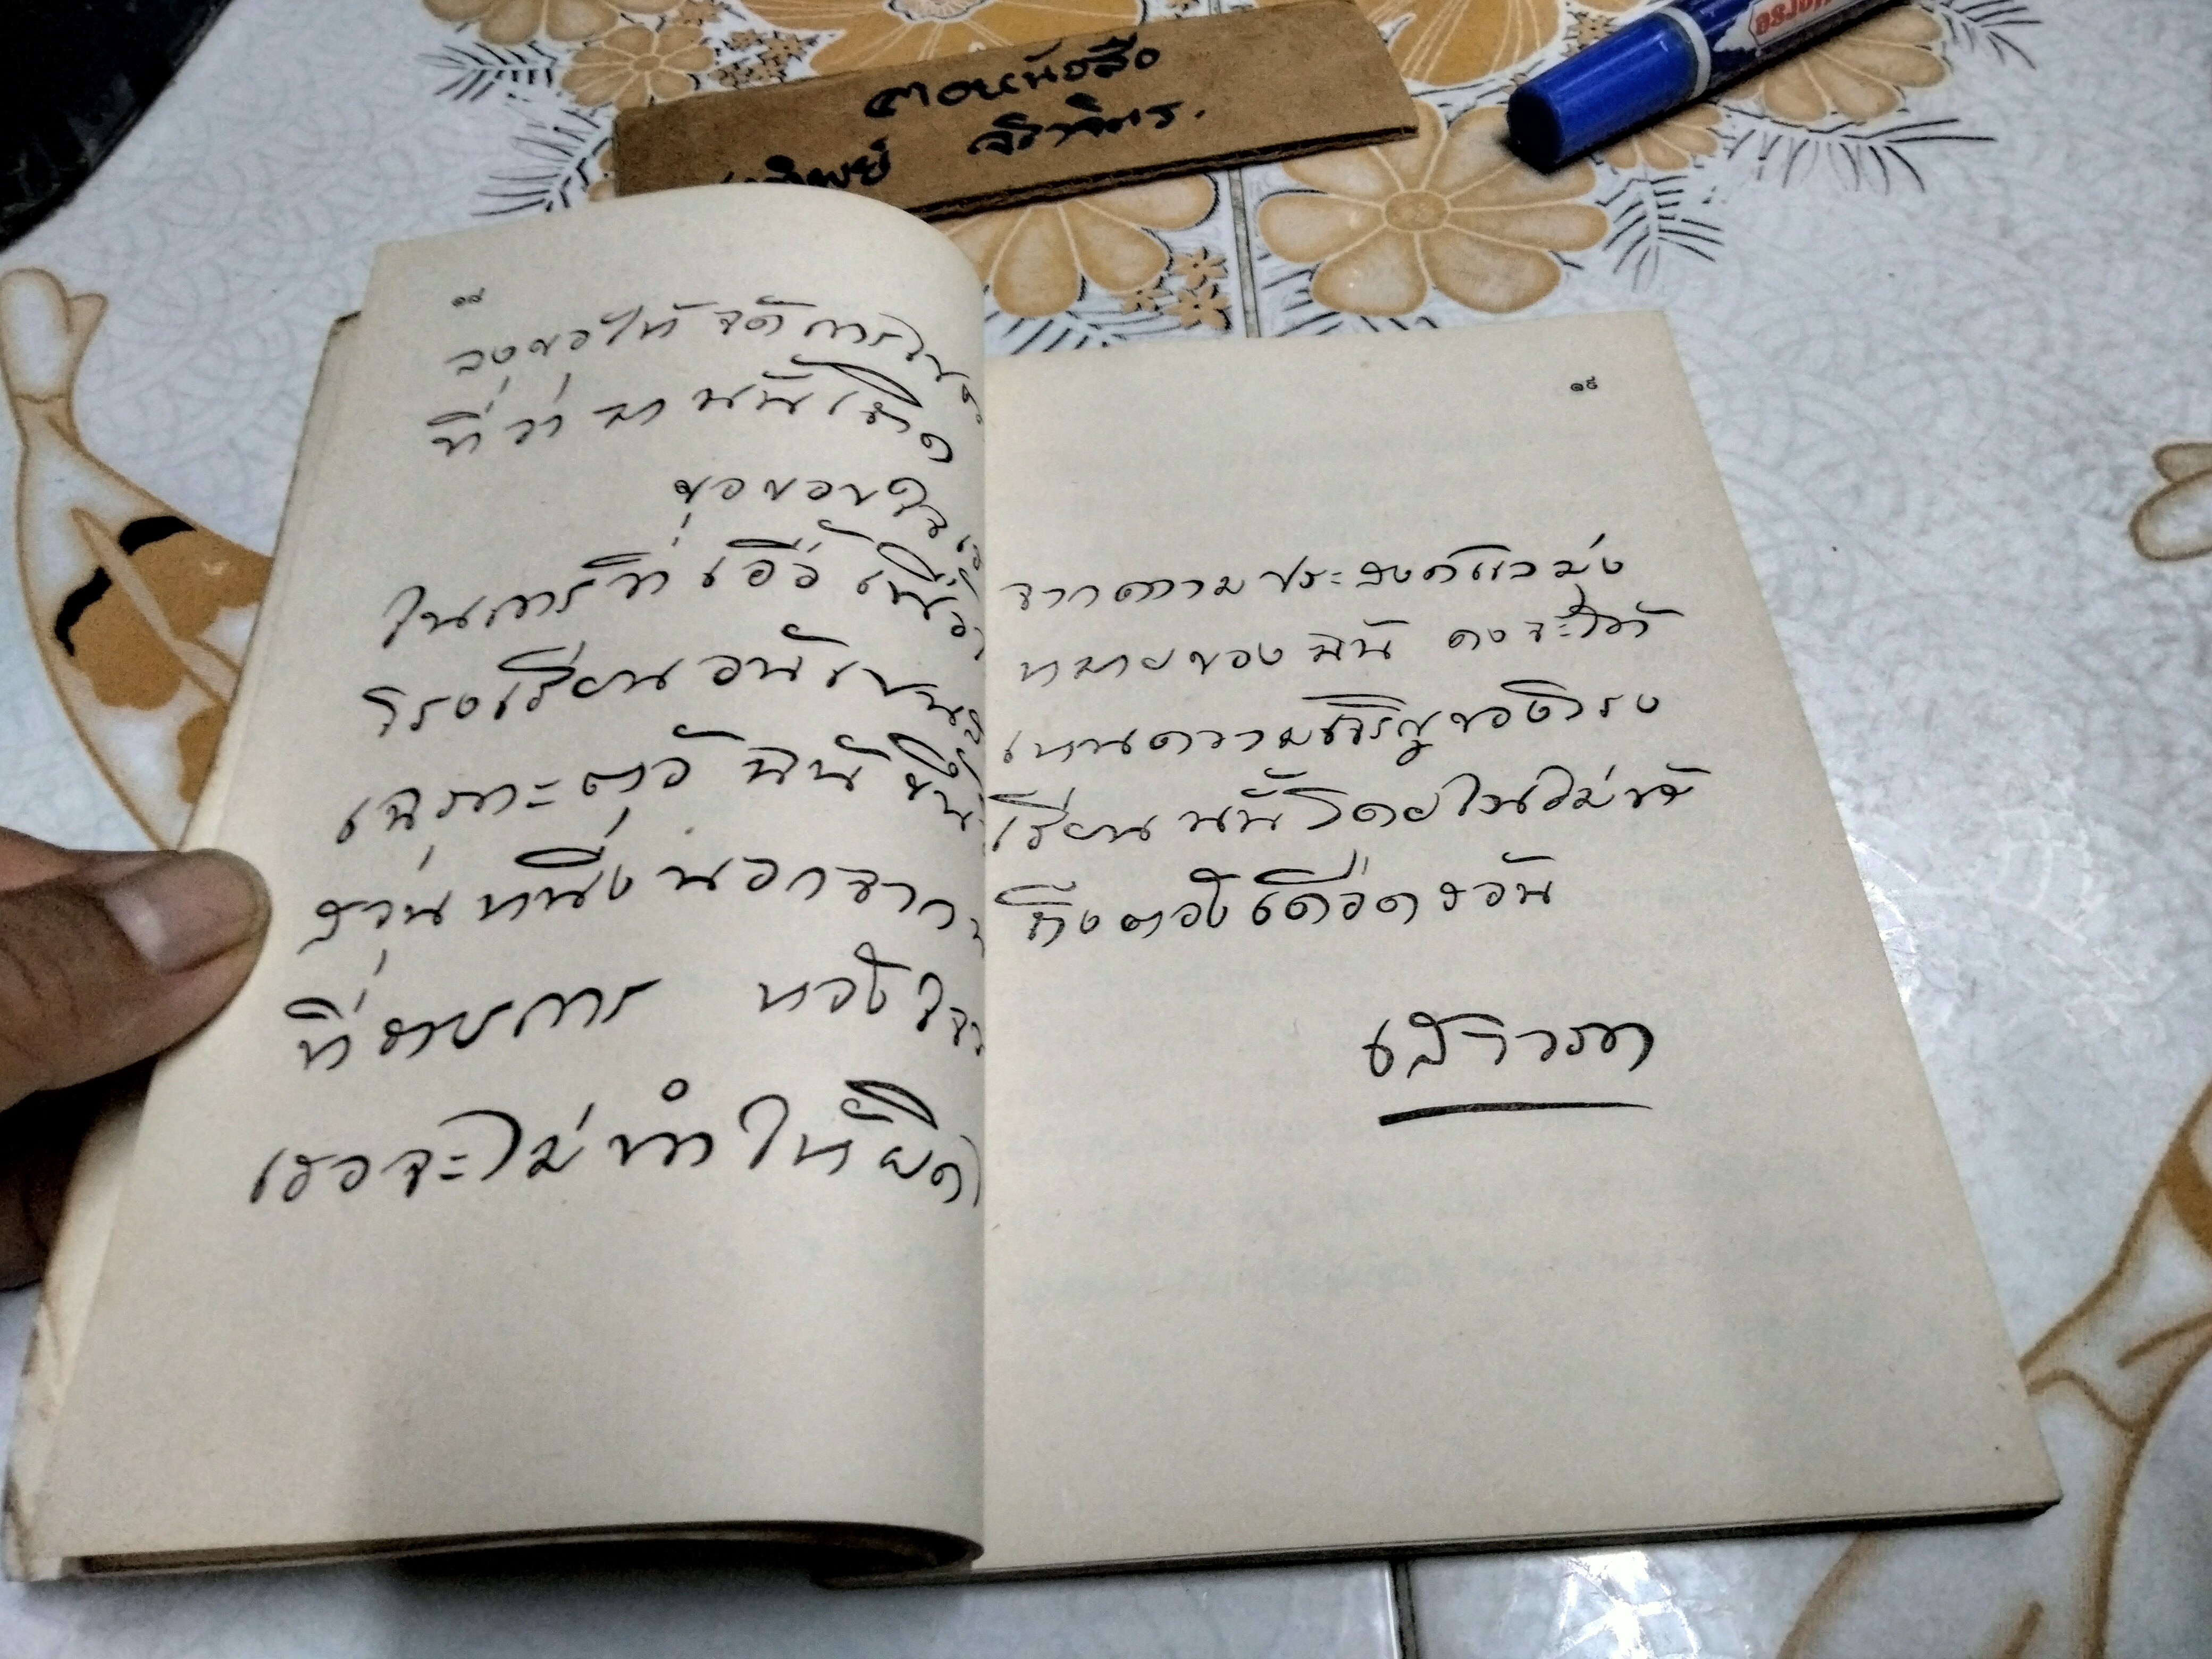 ตอหนังสือ
ทิพย์ จริาจิตร.
๑๘
จงขอให้จัดการใน
ที่ว่ามานั้นเถิด
ขอขอบใจ
ในการที่เอื้อเฟื้อ
โรงเรียนอัน
เฉพาะตัวฉัน
ส่วนหนึ่งนอกจาก
ที่ราชการ หวังใจ
เธอจะไม่ทำให้ผิด
๑๙
จากความประสงค์แลมุ่ง
หมายของฉัน คงจะได้
เห็นความเจริญของโรง
เรียนนั้นโดยเร็วไม่ช้า
ถึงต้องเดือดร้อน
เสาวภา
Horse